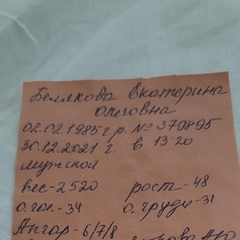 Белякова Екатерина
Олеговна
02.02.1985 г р. № 379895
30.12.2021 г. в 13:20
мужской
вес-2520 рост-48
о.гол.-34 о.груди-31
Апгар-6/7/8